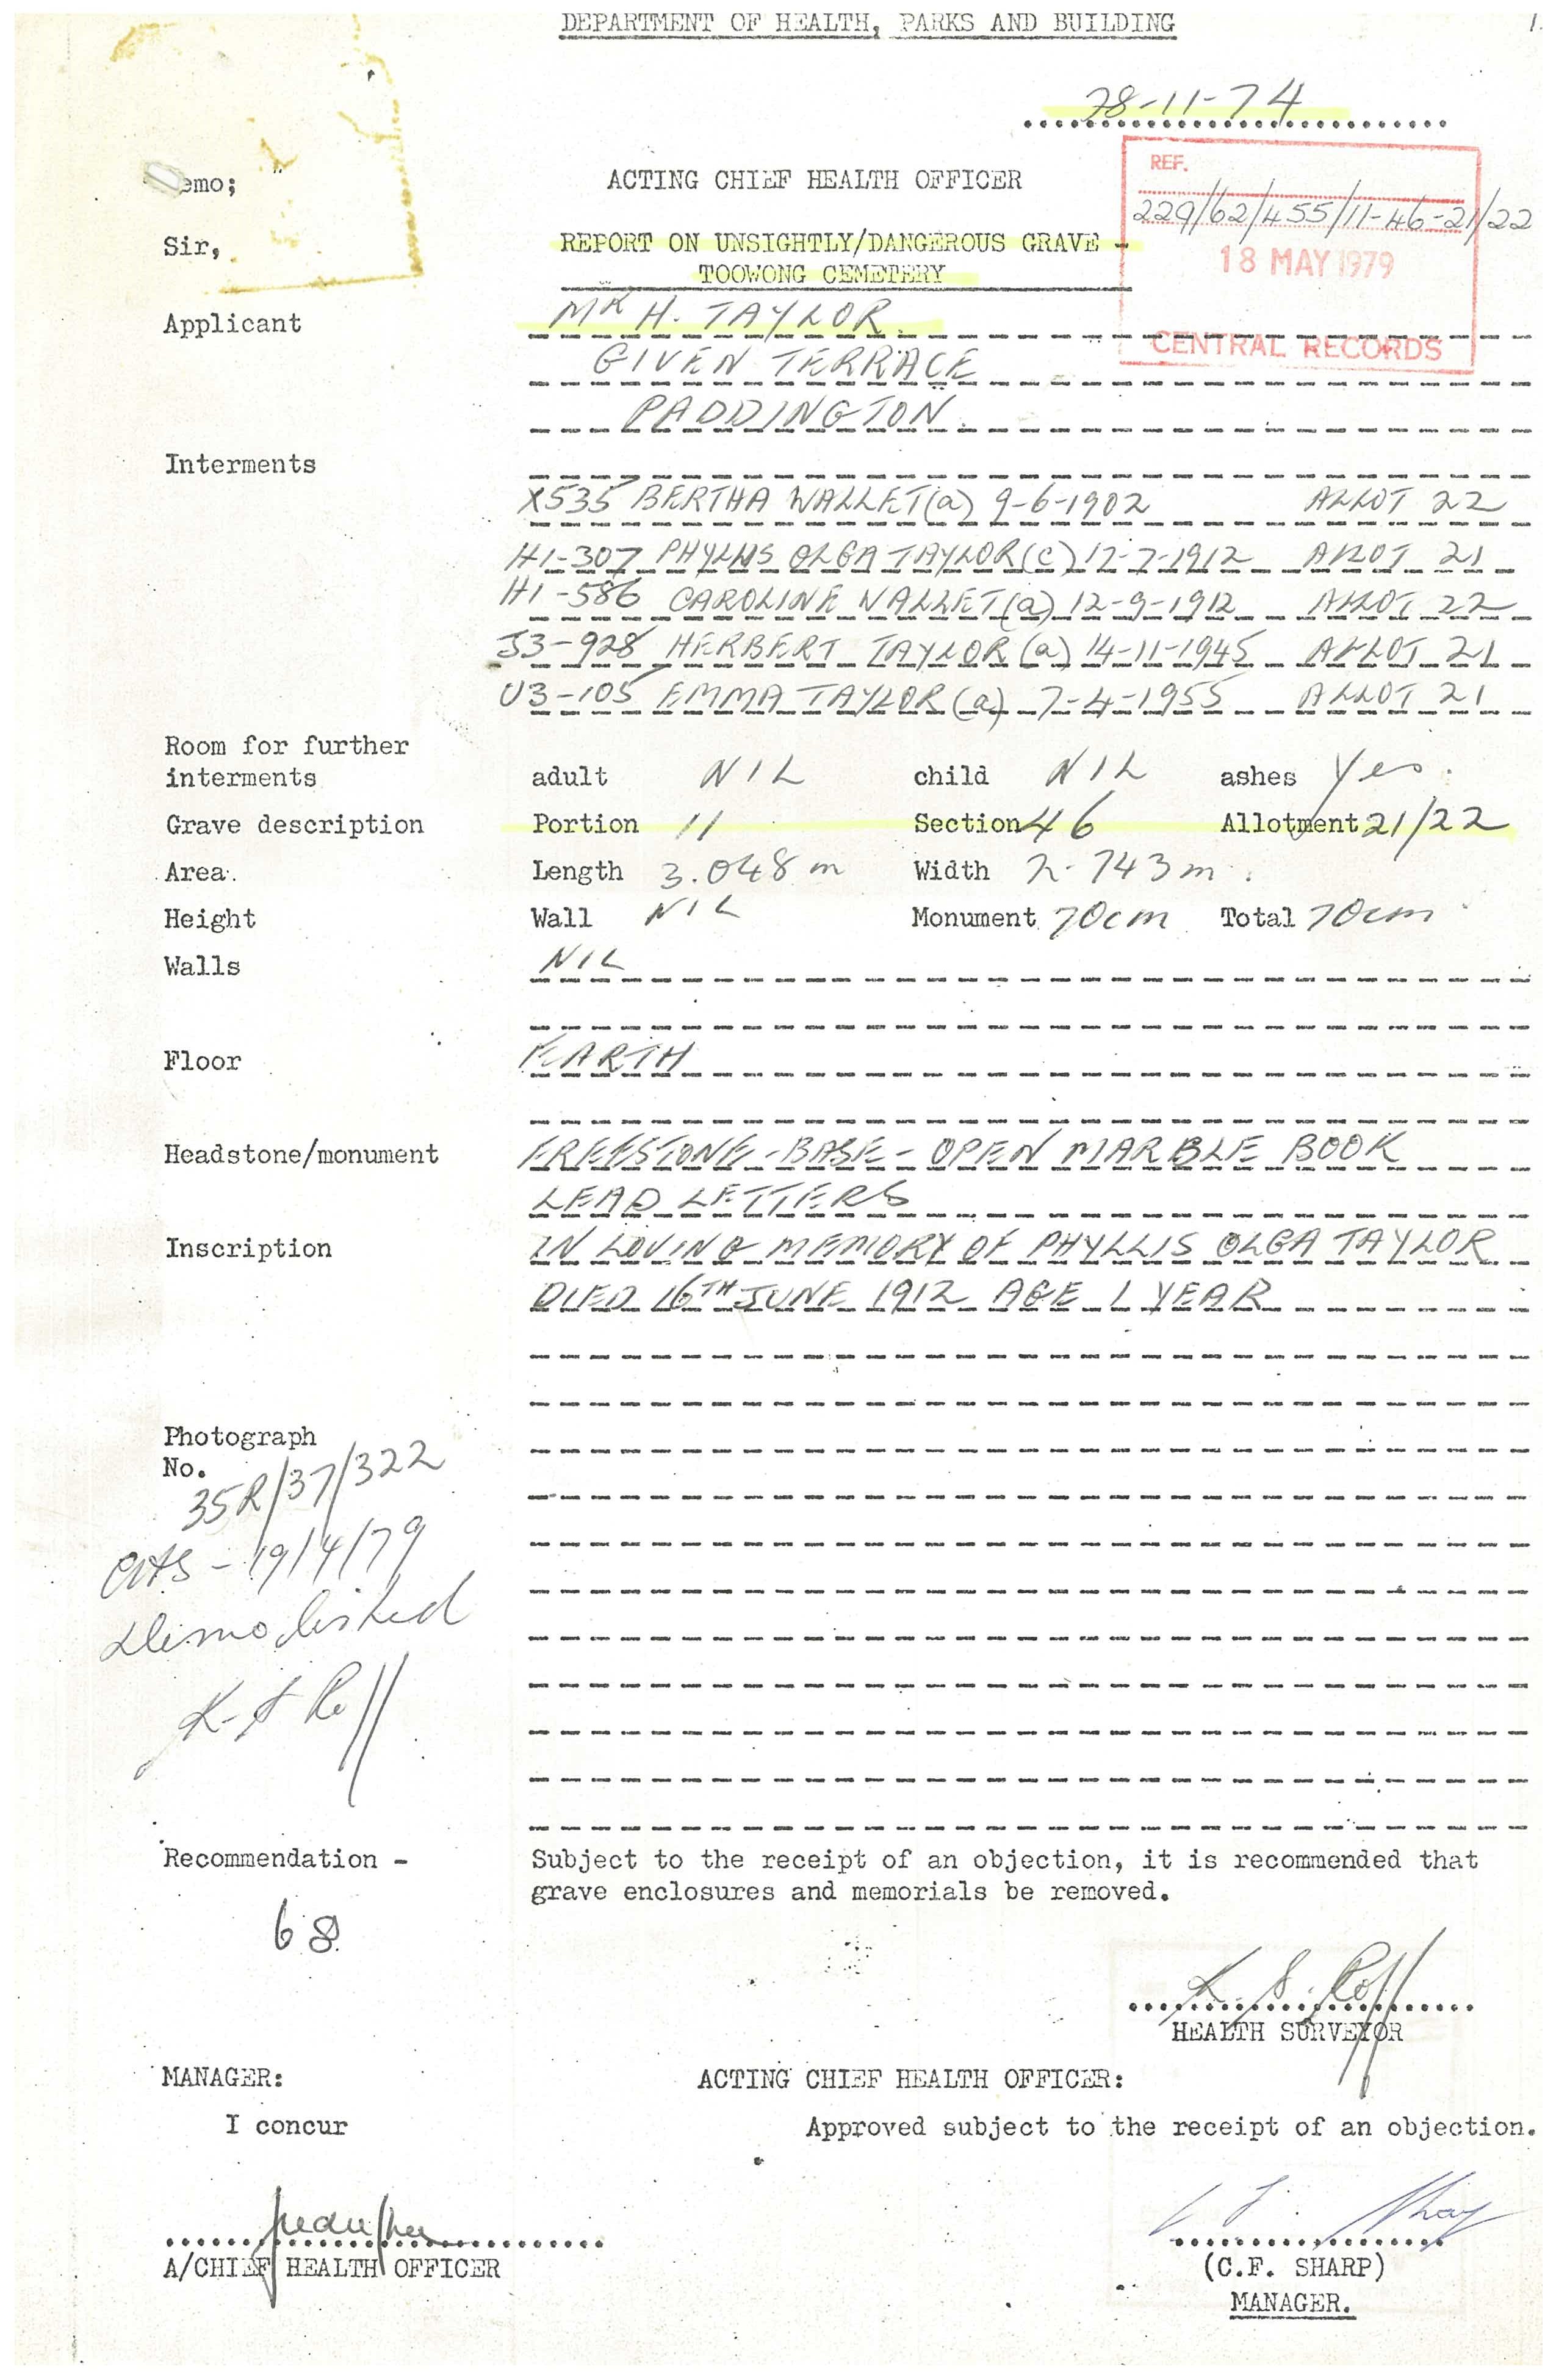 DEPARTMENT OF HEALTH, PARKS AND BUILDING
1.
28-11-74
emo;
ACTING CHIEF HEALTH OFFICER
REF.
229/62/455/11-46-21/22
18 MAY 1979
CENTRAL RECORDS
Sir,
REPORT ON UNSIGHTLY/DANGEROUS GRAVE -
TOOWONG CEMETERY
Applicant MR H. TAYLOR.
GIVEN TERRACE
PADDINGTON.
Interments
X535 BERTHA WALLET (a) 9-6-1902 ALLOT 22
H1-307 PHYLLIS OLGA TAYLOR (c) 17-7-1912 ALLOT 21
H1-586 CAROLINE WALLET (a) 12-9-1912 ALLOT 22
J3-928 HERBERT TAYLOR (a) 14-11-1945 ALLOT 21
U3-105 EMMA TAYLOR (a) 7-4-1955 ALLOT 21
Room for further
interments adult NIL child NIL ashes Yes.
Grave description Portion 11 Section 46 Allotment 21/22
Area. Length 3.048 m Width 2.743 m.
Height Wall NIL Monument 70cm Total 70cm
Walls NIL
Floor EARTH
Headstone/monument FREESTONE - BASE - OPEN MARBLE BOOK
LEAD LETTERS
Inscription IN LOVING MEMORY OF PHYLLIS OLGA TAYLOR
DIED 16TH JUNE 1912 AGE 1 YEAR
Photograph
No.
35R/37/322
19/4/79
Demolished
K. S. Roff
Recommendation - Subject to the receipt of an objection, it is recommended that
grave enclosures and memorials be removed.
68
K. S. Roff
HEALTH SURVEYOR
MANAGER: ACTING CHIEF HEALTH OFFICER:
I concur Approved subject to the receipt of an objection.
A/CHIEF HEALTH OFFICER
(C.F. SHARP)
MANAGER.